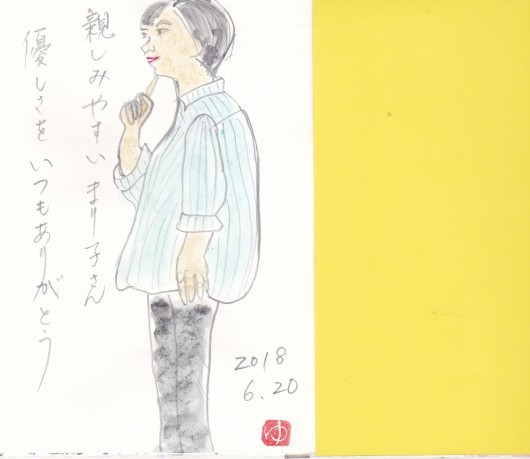 親しみやすい まり子さん
優しさを いつもありがとう
2018
6.20
ゆ